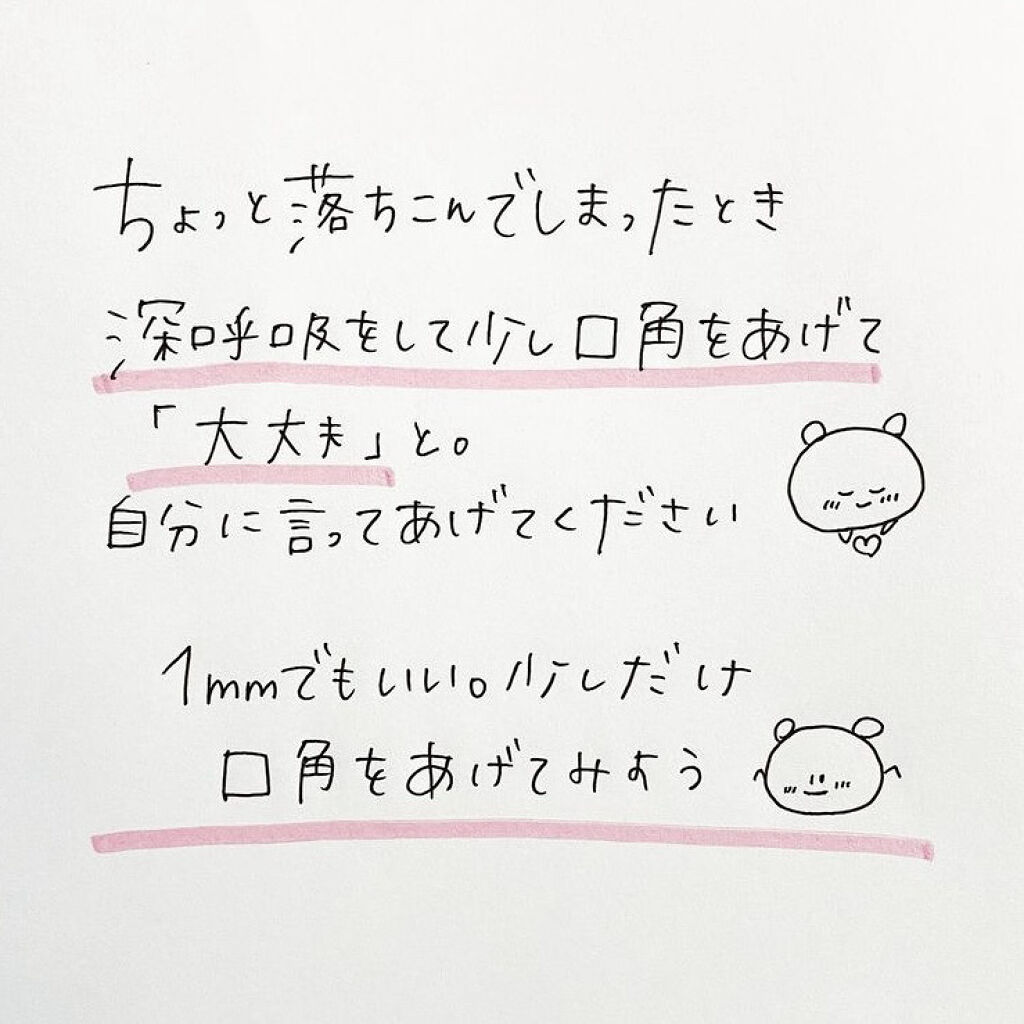 ちょっと落ちこんでしまったとき
深呼吸をして少し口角をあげて
「大丈夫」と。
自分に言ってあげてください
1mmでもいい。少しだけ
口角をあげてみよう